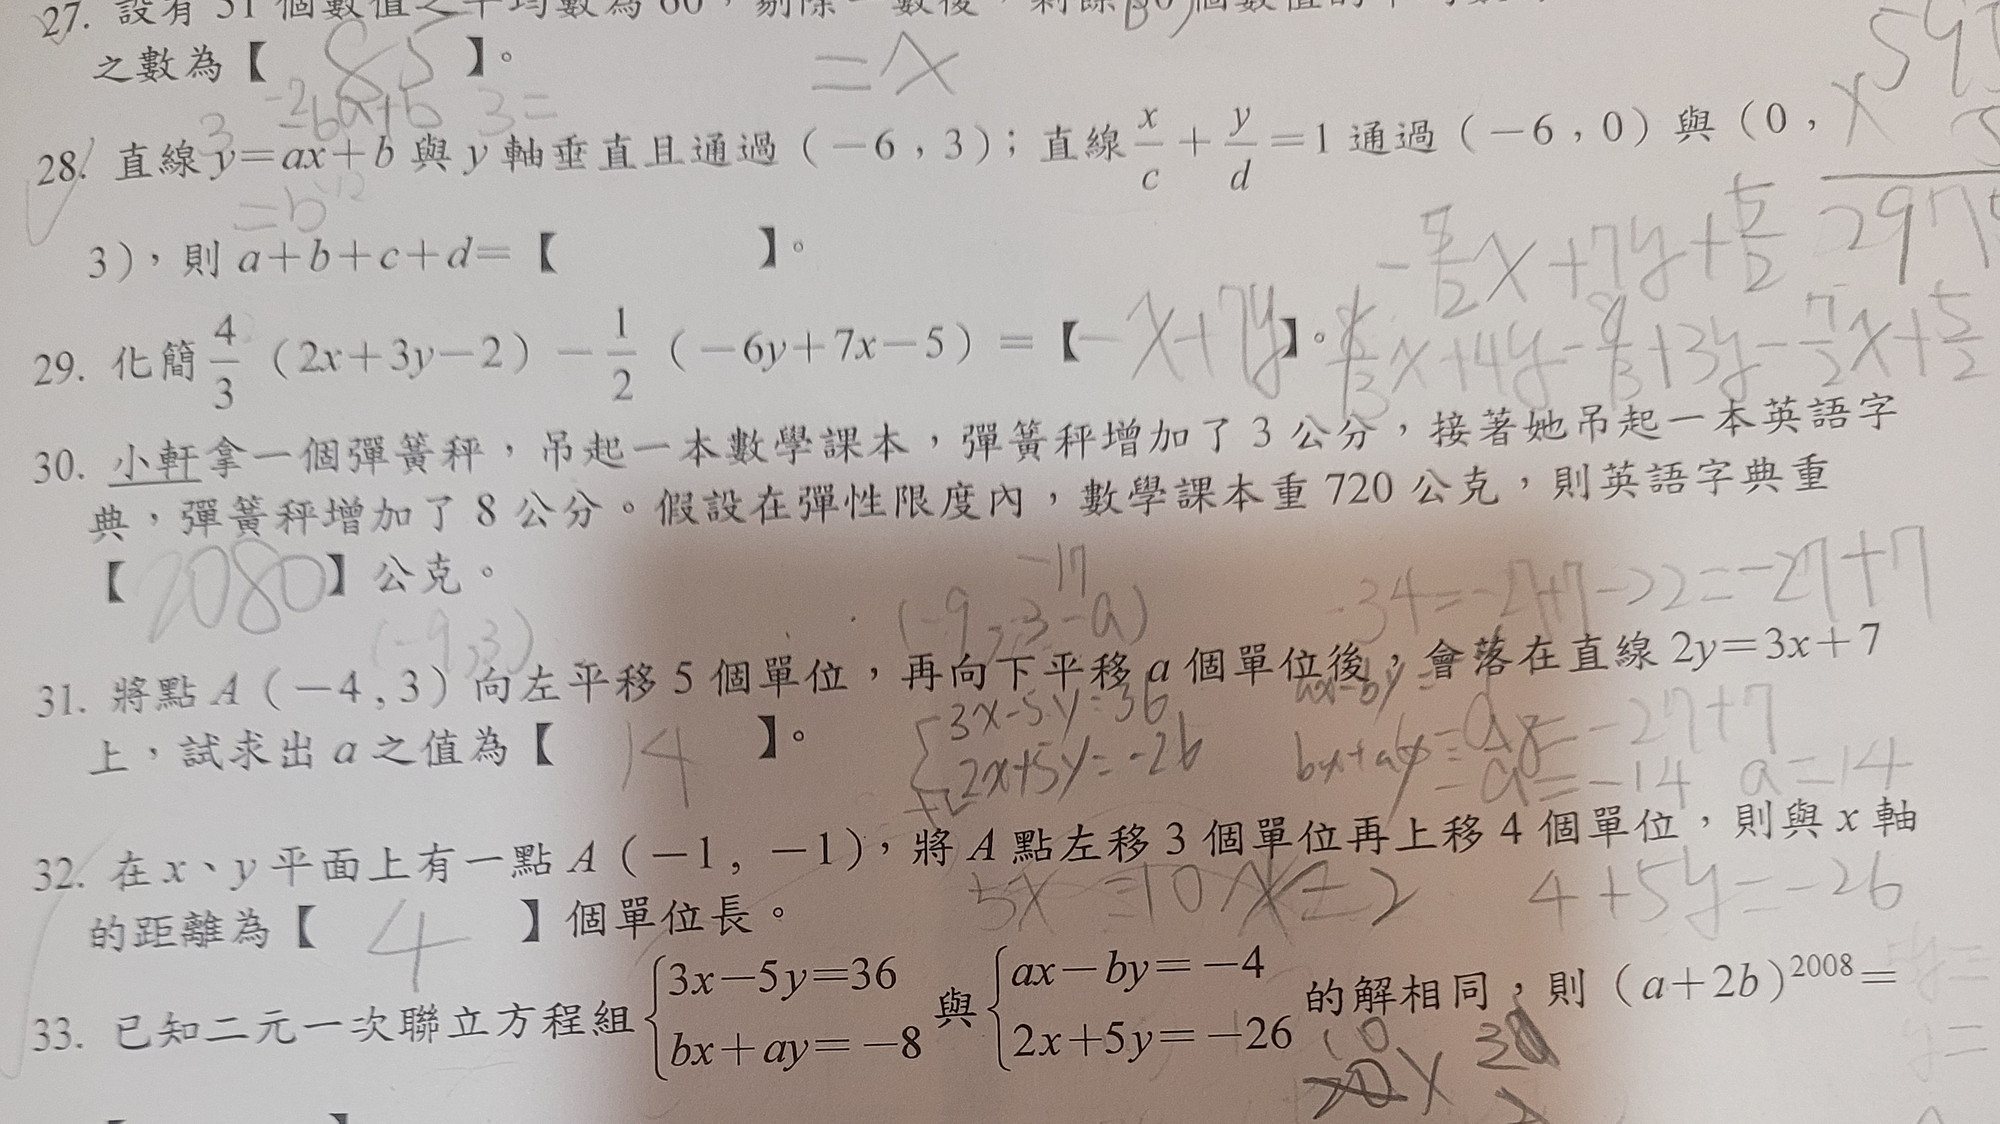 27. 設有 51 個數值之平均數為 60,剔除一數後,剩餘 50 個數值的平均數
之數為【 85 】。
28. 直線 y=ax+b 與 y 軸垂直且通過(-6,3);直線 x/c + y/d =1 通過(-6,0)與(0,
3),則 a+b+c+d=【 】。
29. 化簡 4/3 (2x+3y-2)- 1/2 (-6y+7x-5)=【-x+7y】。
30. 小軒拿一個彈簧秤,吊起一本數學課本,彈簧秤增加了 3 公分,接著她吊起一本英語字
典,彈簧秤增加了 8 公分。假設在彈性限度內,數學課本重 720 公克,則英語字典重
【 2080 】公克。
(-9,3)
-17
(-9,3-a)
-34=-27+7-22=-27+7
31. 將點 A(-4,3)向左平移 5 個單位,再向下平移 a 個單位後,會落在直線 2y=3x+7
上,試求出 a 之值為【 14 】。
3x-5y=36
2x+5y=-26
=-27+7
a=-14 a=14
32. 在 x、y 平面上有一點 A(-1,-1),將 A 點左移 3 個單位再上移 4 個單位,則與 x 軸
的距離為【 4 】個單位長。
5x=10 x=2
4+5y=-26
33. 已知二元一次聯立方程組 { 3x-5y=36 與 { ax-by=-4 的解相同,則(a+2b)^2008=
bx+ay=-8 2x+5y=-26
【 】